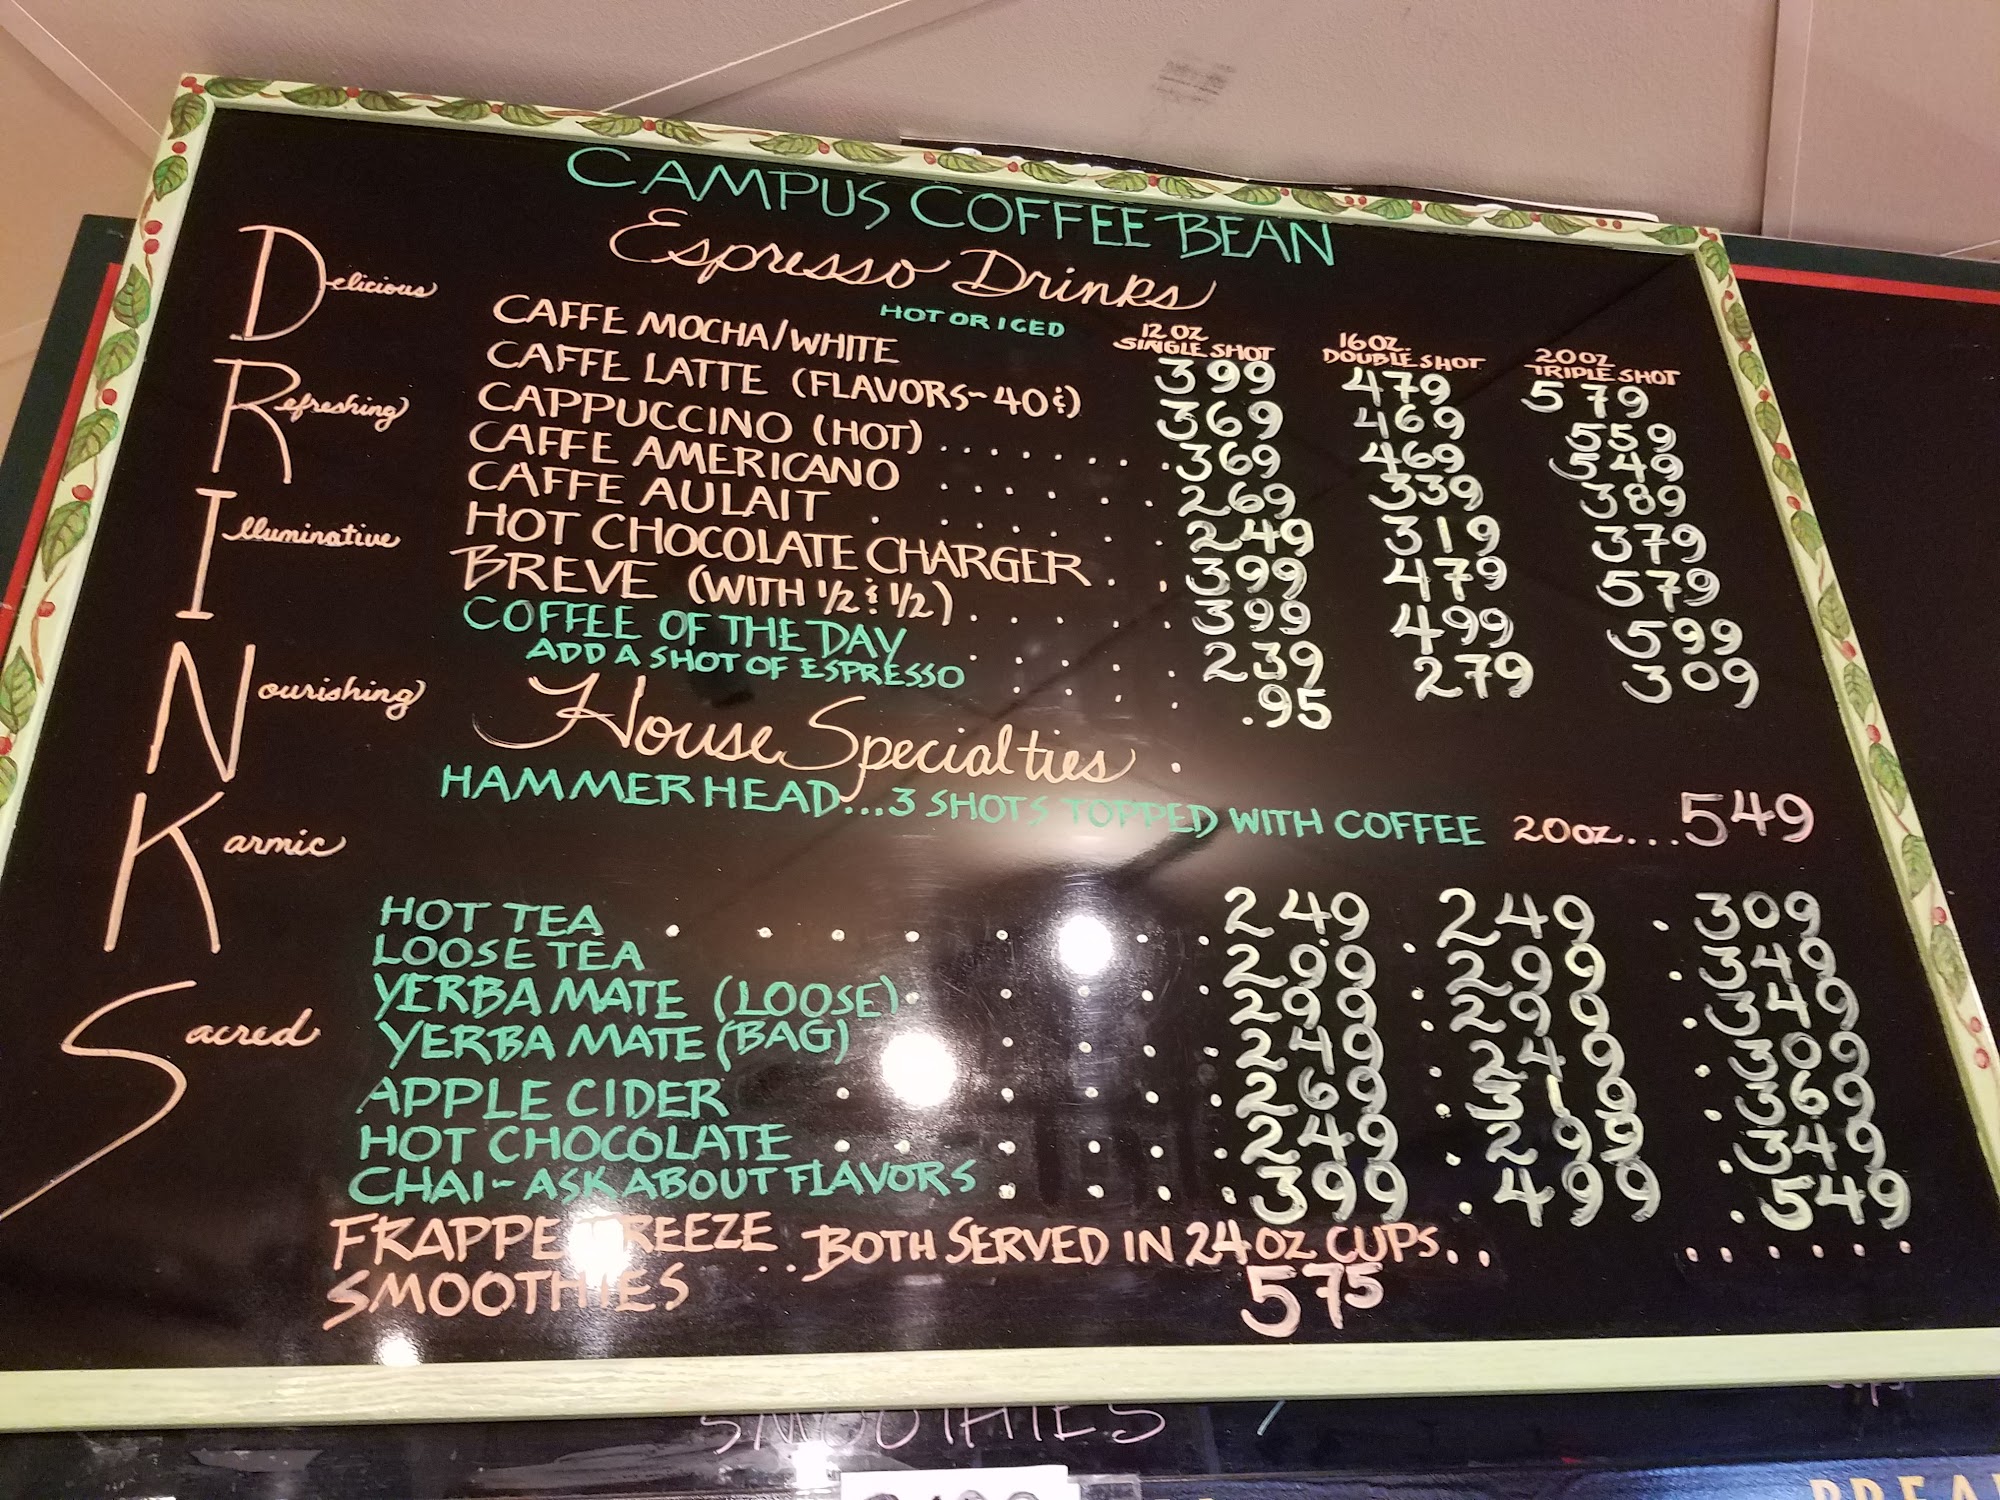 CAMPUS COFFEE BEAN
Espresso Drinks
HOT OR ICED
12 OZ SINGLE SHOT
16 OZ. DOUBLE SHOT
20 OZ TRIPLE SHOT
Delicious
Refreshing
Illuminative
Nourishing
Karmic
Sacred
CAFFE MOCHA/WHITE 399 479 579
CAFFE LATTE (FLAVORS~40¢) 369 469 559
CAPPUCCINO (HOT) ........ 369 469 549
CAFFE AMERICANO ..... 269 339 389
CAFFE AU LAIT ...... 249 319 379
HOT CHOCOLATE CHARGER .. 399 479 579
BREVE (WITH 1/2 & 1/2) ..... 399 499 599
COFFEE OF THE DAY ..... 239 279 309
ADD A SHOT OF ESPRESSO .... .95
House Specialties
HAMMERHEAD...3 SHOTS TOPPED WITH COFFEE 20 OZ...549
HOT TEA ........ 249 249 . 309
LOOSE TEA 299 . 299 . 349
YERBA MATE (LOOSE) ..... 299 . 299 . 349
YERBA MATE (BAG) .... 249 . 249 . 309
APPLE CIDER ...... 269 . 319 . 369
HOT CHOCOLATE ...... 249 . 299 . 349
CHAI~ASK ABOUT FLAVORS .... 399 . 499 . 549
FRAPPE FREEZE .. BOTH SERVED IN 24 OZ CUPS.. ......
SMOOTHIES 575
SMOOTHIES